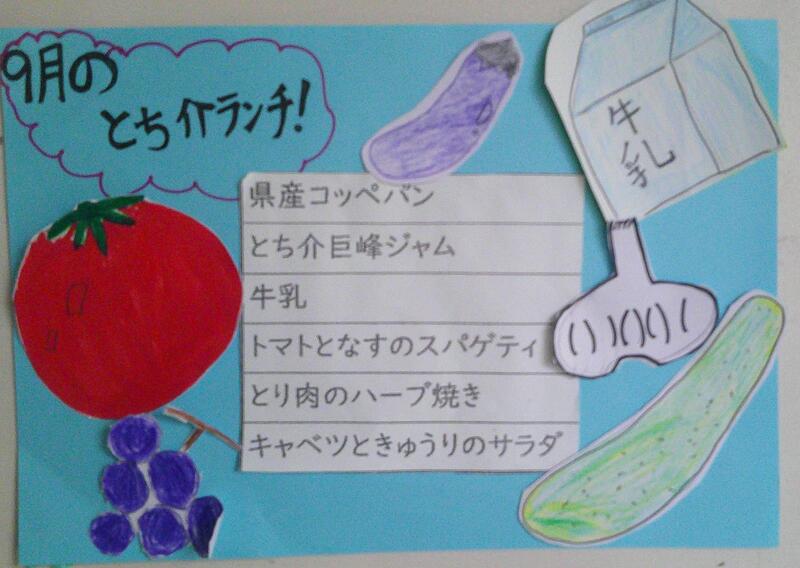 9月の
とち介ランチ!
県産コッペパン
とち介巨峰ジャム
牛乳
トマトとなすのスパゲティ
とり肉のハーブ焼き
キャベツときゅうりのサラダ
牛乳